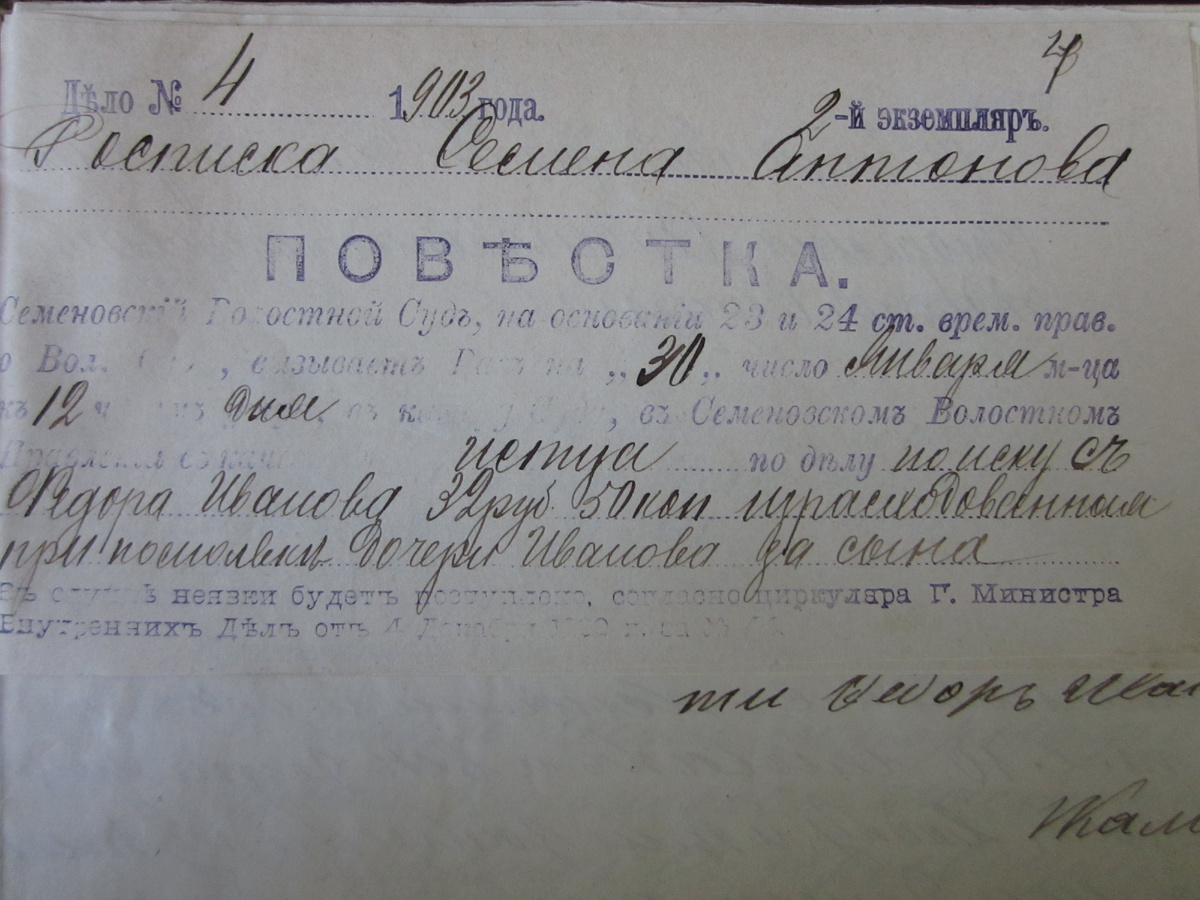 4
Дѣло № 4 1903 года. 2-й экземпляръ.
Росписка Семена Антонова
ПОВѢСТКА.
Семеновскій Волостной Судъ, на основаніи 23 и 24 ст. врем. прав.
о Вол. вызываетъ Васъ на „30„ число Января м-ца
къ 12 дня въ Суда, въ Семеновскомъ Волостномъ
Правленіи истца по дѣлу по иску съ
Ѳедора Иванова 32 руб 50 коп израсходованныя
при помолвки дочери Иванова за сына
Въ случаѣ неявки будетъ поступлено, согласно циркуляра Г. Министра
Внутреннихъ Дѣлъ отъ 4 Декабря